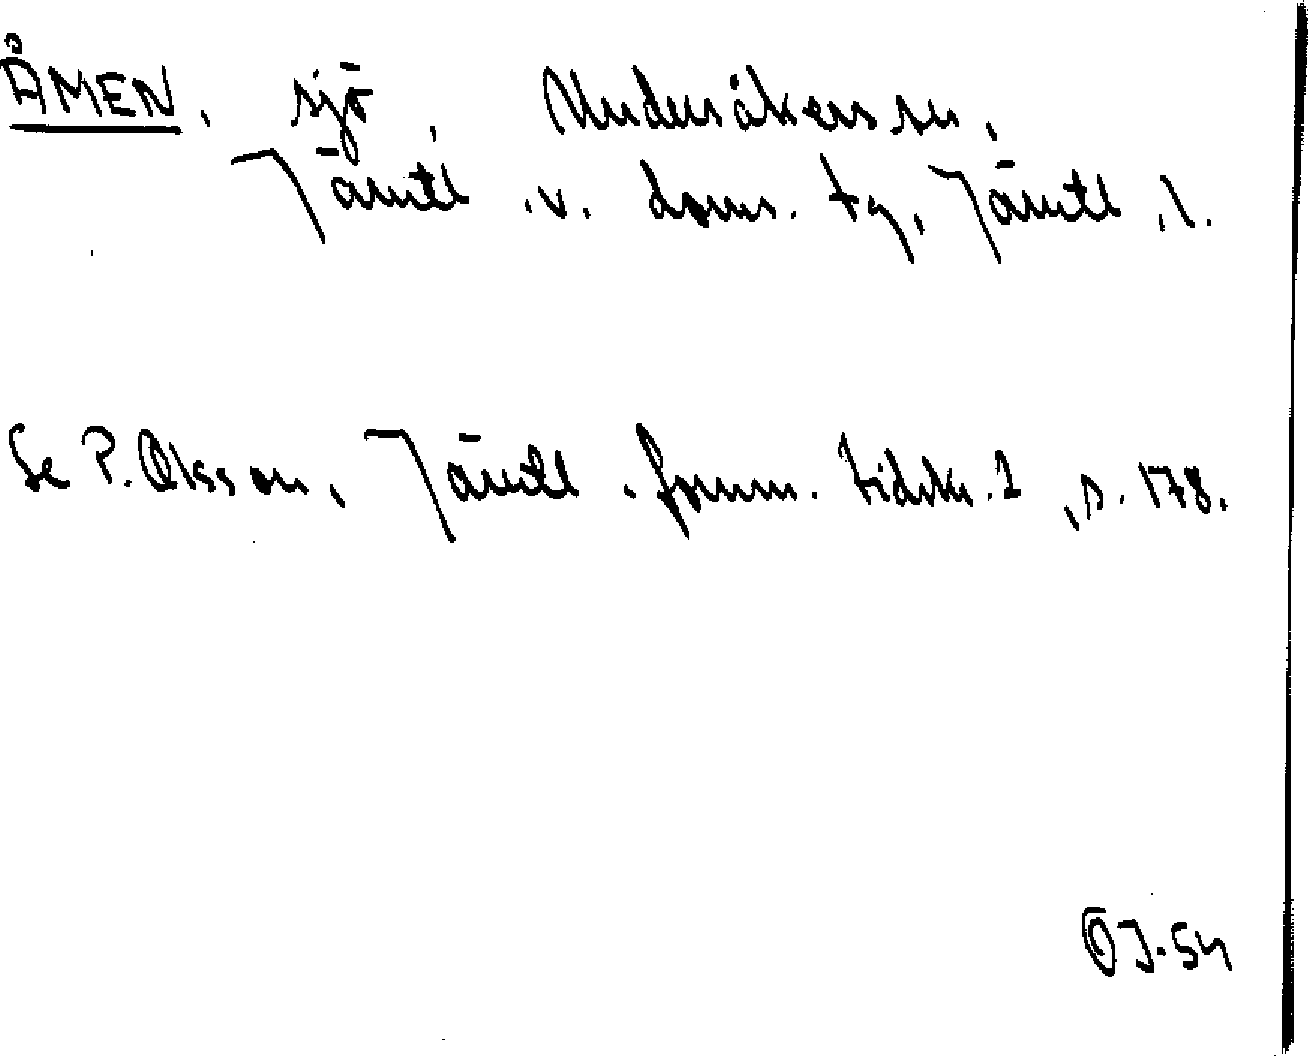 ÅMEN, sjö, Undersåkers sn,
Jämtl. v. doms. tg, Jämtl. l.
Se P. Olsson, Jämtl. fornm. tidskr. 1, s. 178.
ÖJ-54